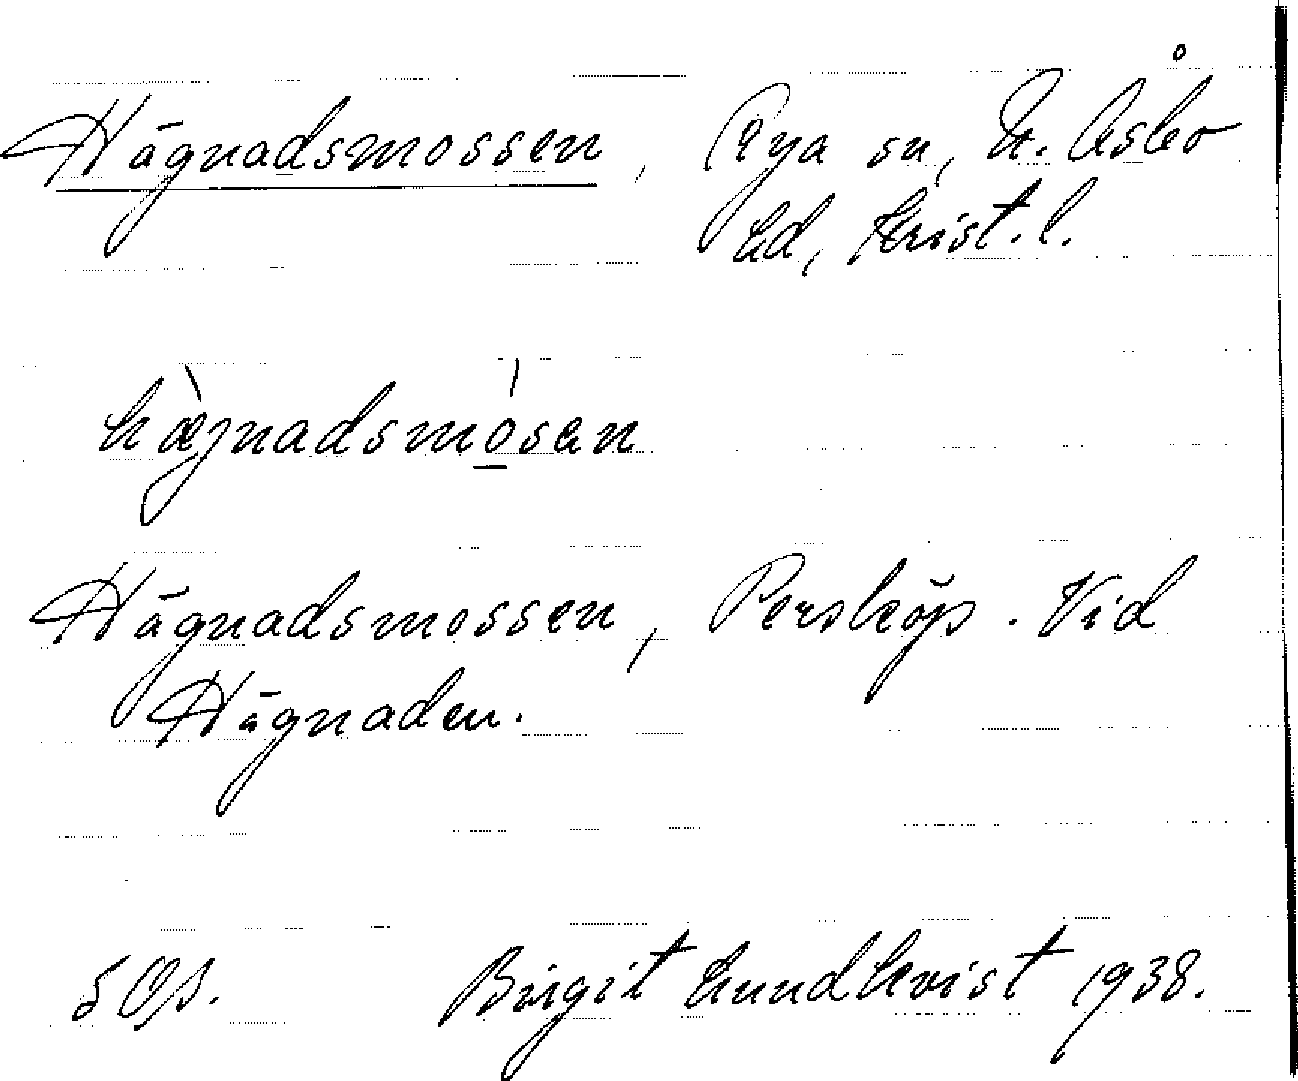 Hägnadsmossen, Rya sn, N. Åsbo
hd, Krist. l.
hæ̀jnadsmó̱sen
Hägnadsmossen, Persköp. Vid
Hägnaden.
Birgit Lundkvist 1938.